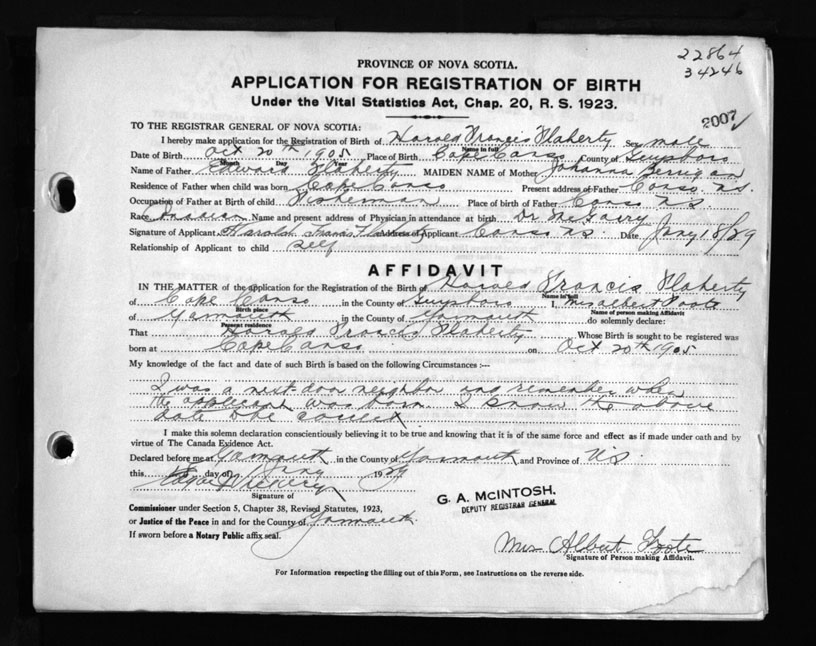 22864
34246
PROVINCE OF NOVA SCOTIA.
APPLICATION FOR REGISTRATION OF BIRTH
Under the Vital Statistics Act, Chap. 20, R. S. 1923.
2007
TO THE REGISTRAR GENERAL OF NOVA SCOTIA:
I hereby make application for the Registration of Birth of Harold Francis Flaherty Sex male
Name in full
Date of Birth Oct 20th 1905 Place of Birth Cape Canso County of Guysboro
Month Day Year
Name of Father Edward Flaherty MAIDEN NAME of Mother Johanna Berrigan
Residence of Father when child was born Cape Canso Present address of Father Canso N.S.
Occupation of Father at Birth of child Fisherman Place of birth of Father Canso N.S.
Race Name and present address of Physician in attendance at birth Dr McGarry
Signature of Applicant Harold Francis Flaherty Address of Applicant Canso N.S. Date Jany 18/29
Relationship of Applicant to child self
AFFIDAVIT
IN THE MATTER of the application for the Registration of the Birth of Harold Francis Flaherty
Name in full
of Cape Canso in the County of Guysboro I, Mrs Albert Foote
Birth place Name of person making Affidavit
of Yarmouth in the County of Yarmouth do solemnly declare:
Present residence
That Harold Francis Flaherty Whose Birth is sought to be registered was
born at Cape Canso on Oct 20th 1905
My knowledge of the fact and date of such Birth is based on the following Circumstances :—
I was a next door neighbor and remember when
the applicant was born. I know the above
date to be correct
I make this solemn declaration conscientiously believing it to be true and knowing that it is of the same force and effect as if made under oath and by
virtue of The Canada Evidence Act.
Declared before me at Yarmouth in the County of Yarmouth and Province of N.S.
this day of Jany 1929
Edgar
Signature of
G. A. McINTOSH.
DEPUTY REGISTRAR GENERAL
Commissioner under Section 5, Chapter 38, Revised Statutes, 1923,
or Justice of the Peace in and for the County of Yarmouth.
If sworn before a Notary Public affix seal.
Mrs Albert Foote
Signature of Person making Affidavit.
For Information respecting the filling out of this Form, see Instructions on the reverse side.